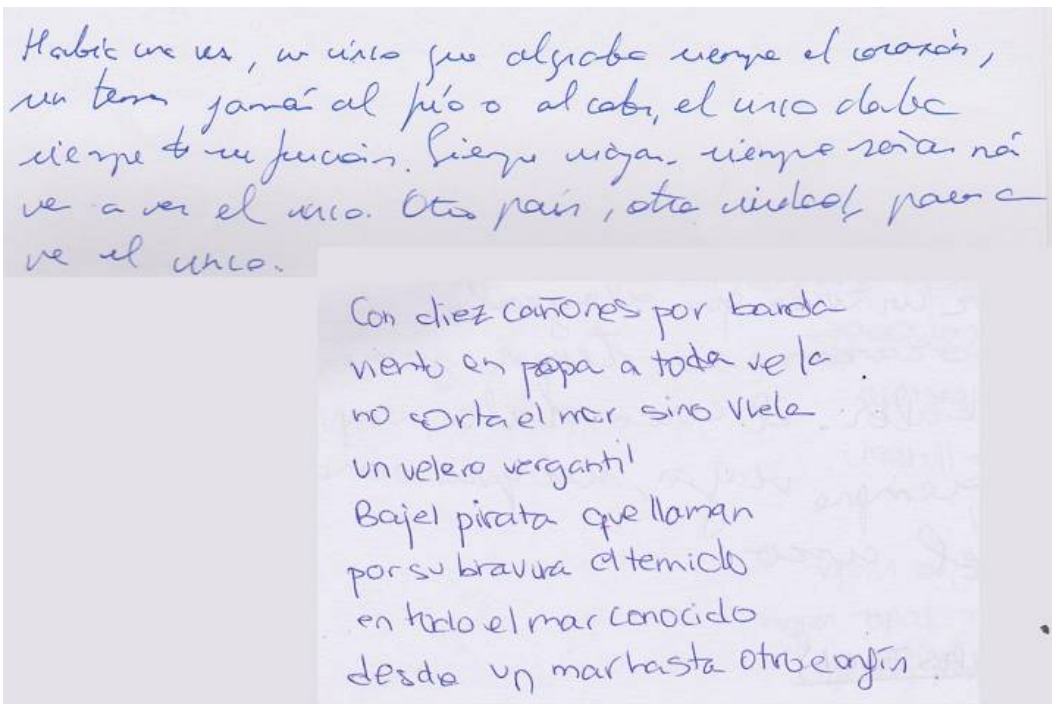 Habia una vez, un circo que alegraba siempre el corazón,
sin temer jamás al frío o al calor, el circo daba
siempre su función. Siempre viajar, siempre
ver a ver el circo. Otro país, otra ciudad, pasen a
ver el circo.
Con diez cañones por banda
viento en popa a toda vela
no corta el mar sino vuela
un velero vergantil
Bajel pirata que llaman
por su bravura el temido
en todo el mar conocido
desde un mar hasta otro confín.